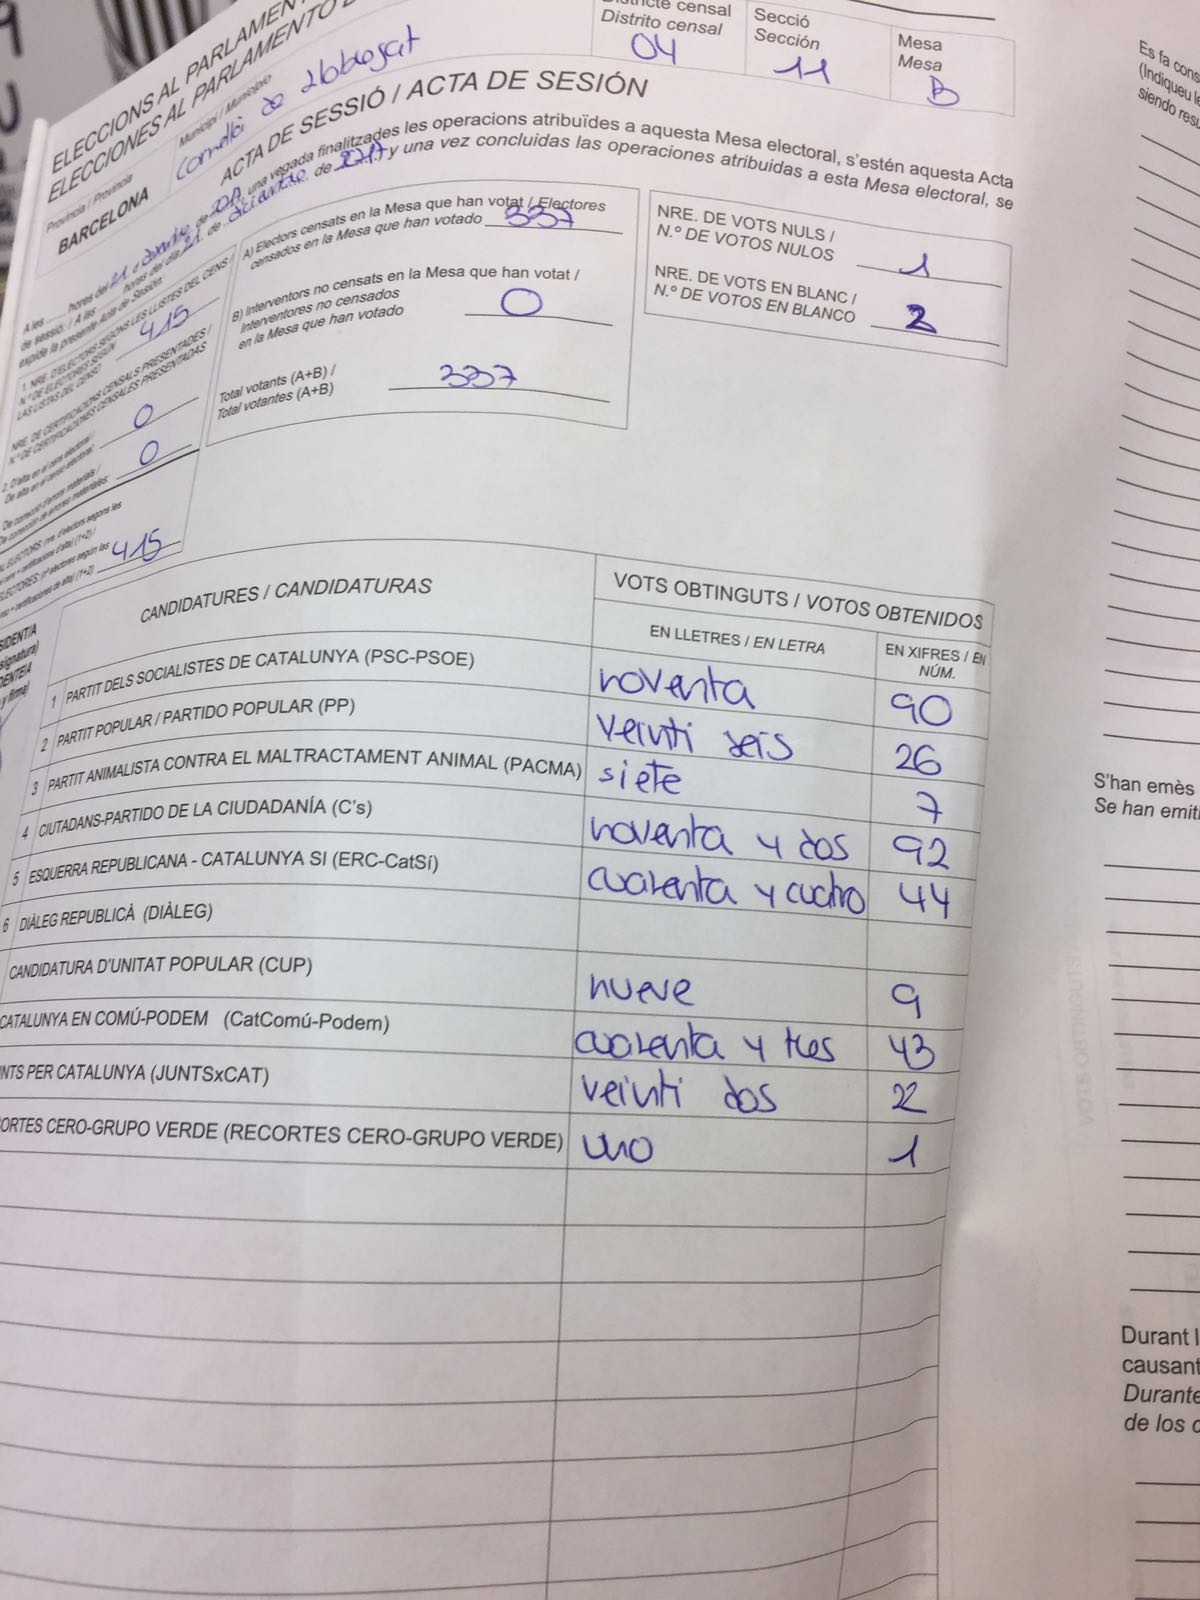 ELECCIONS AL PARLAMENT
ELECCIONES AL PARLAMENTO
Districte censal
Distrito censal
04
Secció
Sección
11
Mesa
Mesa
B
Província / Provincia
BARCELONA
Municipi / Municipio
Cornellà de Llobregat
ACTA DE SESSIÓ / ACTA DE SESIÓN
A les hores del 21 de una vegada finalitzades les operacions atribuïdes a aquesta Mesa electoral, s'estén aquesta Acta
de sessió: / A las horas del día 21 de diciembre de 2017 y una vez concluidas las operaciones atribuidas a esta Mesa electoral, se
expide la presente Acta de Sesión:
1. NRE. D'ELECTORS SEGONS LES LLISTES DEL CENS /
N.º DE ELECTORES SEGÚN
LAS LISTAS DEL CENSO
415
NRE. DE CERTIFICACIONS CENSALS PRESENTADES /
N.º DE CERTIFICACIONES CENSALES PRESENTADAS
2. D'alta en el cens electoral /
De alta en el censo electoral:
0
De correcció d'errors materials /
De corrección de errores materiales:
0
415
A) Electors censats en la Mesa que han votat / Electores
censados en la Mesa que han votado 337
B) Interventors no censats en la Mesa que han votat /
Interventores no censados
en la Mesa que han votado
0
Total votants (A+B) /
Total votantes (A+B)
337
NRE. DE VOTS NULS /
N.º DE VOTOS NULOS
1
NRE. DE VOTS EN BLANC /
N.º DE VOTOS EN BLANCO
2
CANDIDATURES / CANDIDATURAS
VOTS OBTINGUTS / VOTOS OBTENIDOS
EN LLETRES / EN LETRA
EN XIFRES / EN NÚM.
1 PARTIT DELS SOCIALISTES DE CATALUNYA (PSC-PSOE) noventa 90
2 PARTIT POPULAR / PARTIDO POPULAR (PP) veinti seis 26
3 PARTIT ANIMALISTA CONTRA EL MALTRACTAMENT ANIMAL (PACMA) siete 7
4 CIUTADANS-PARTIDO DE LA CIUDADANÍA (C's) noventa y dos 92
5 ESQUERRA REPUBLICANA - CATALUNYA SI (ERC-CatSí) cuarenta y cuatro 44
6 DIÀLEG REPUBLICÀ (DIÀLEG)
CANDIDATURA D'UNITAT POPULAR (CUP) nueve 9
CATALUNYA EN COMÚ-PODEM (CatComú-Podem) cuarenta y tres 43
NTS PER CATALUNYA (JUNTSxCAT) veinti dos 22
ORTES CERO-GRUPO VERDE (RECORTES CERO-GRUPO VERDE) uno 1
Es fa cons
(Indiqueu le
siendo resu
S'han emès
Se han emiti
VOTS OBTINGUTS
Durant l
causant
Durante
de los c